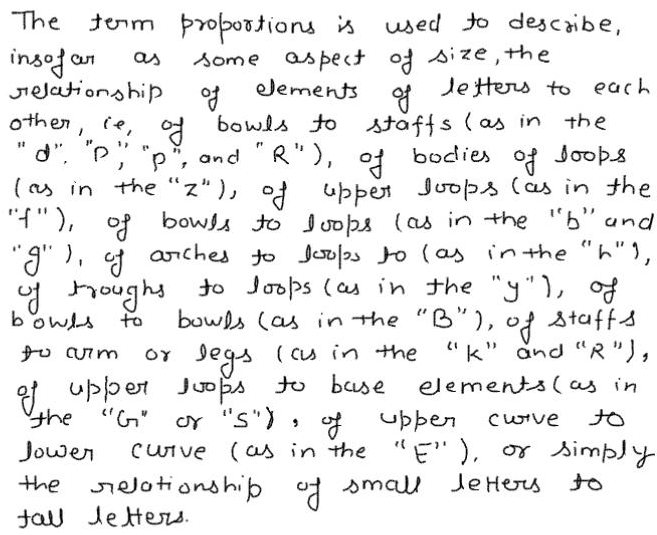 The term proportions is used to describe,
insofar as some aspect of size, the
relationship of elements of letters to each
other, ie, of bowls to staffs (as in the
"d", "D", "p", and "R"), of bodies of loops
(as in the "z"), of upper loops (as in the
"f"), of bowls to loops (as in the "b" and
"g"), of arches to loops to (as in the "h"),
of troughs to loops (as in the "y"), of
bowls to bowls (as in the "B"), of staffs
to arm or legs (as in the "k" and "R"),
of upper loops to base elements (as in
the "G" or "S"), of upper curve to
lower curve (as in the "E"), or simply
the relationship of small letters to
tall letters.